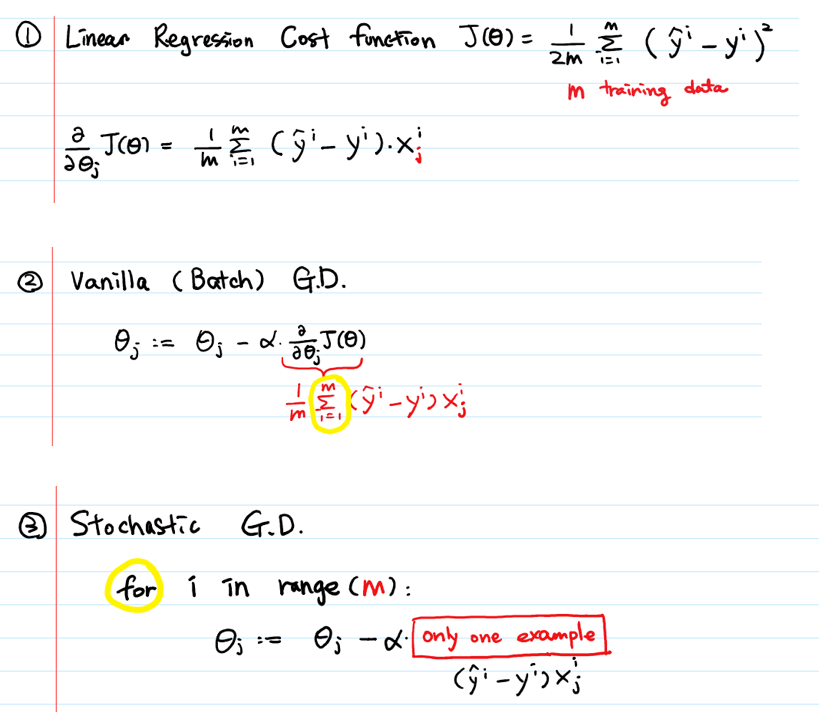 ① Linear Regression Cost function J(θ) = 1/2m Σᵢ₌₁ᵐ (ŷⁱ - yⁱ)²
m training data
∂/∂θⱼ J(θ) = 1/m Σᵢ₌₁ᵐ (ŷⁱ - yⁱ)·xⱼⁱ
② Vanilla (Batch) G.D.
θⱼ := θⱼ - α· ∂/∂θⱼ J(θ)
1/m Σᵢ₌₁ᵐ (ŷⁱ - yⁱ) xⱼⁱ
③ Stochastic G.D.
for i in range(m):
θⱼ := θⱼ - α· only one example
(ŷⁱ - yⁱ) xⱼⁱ